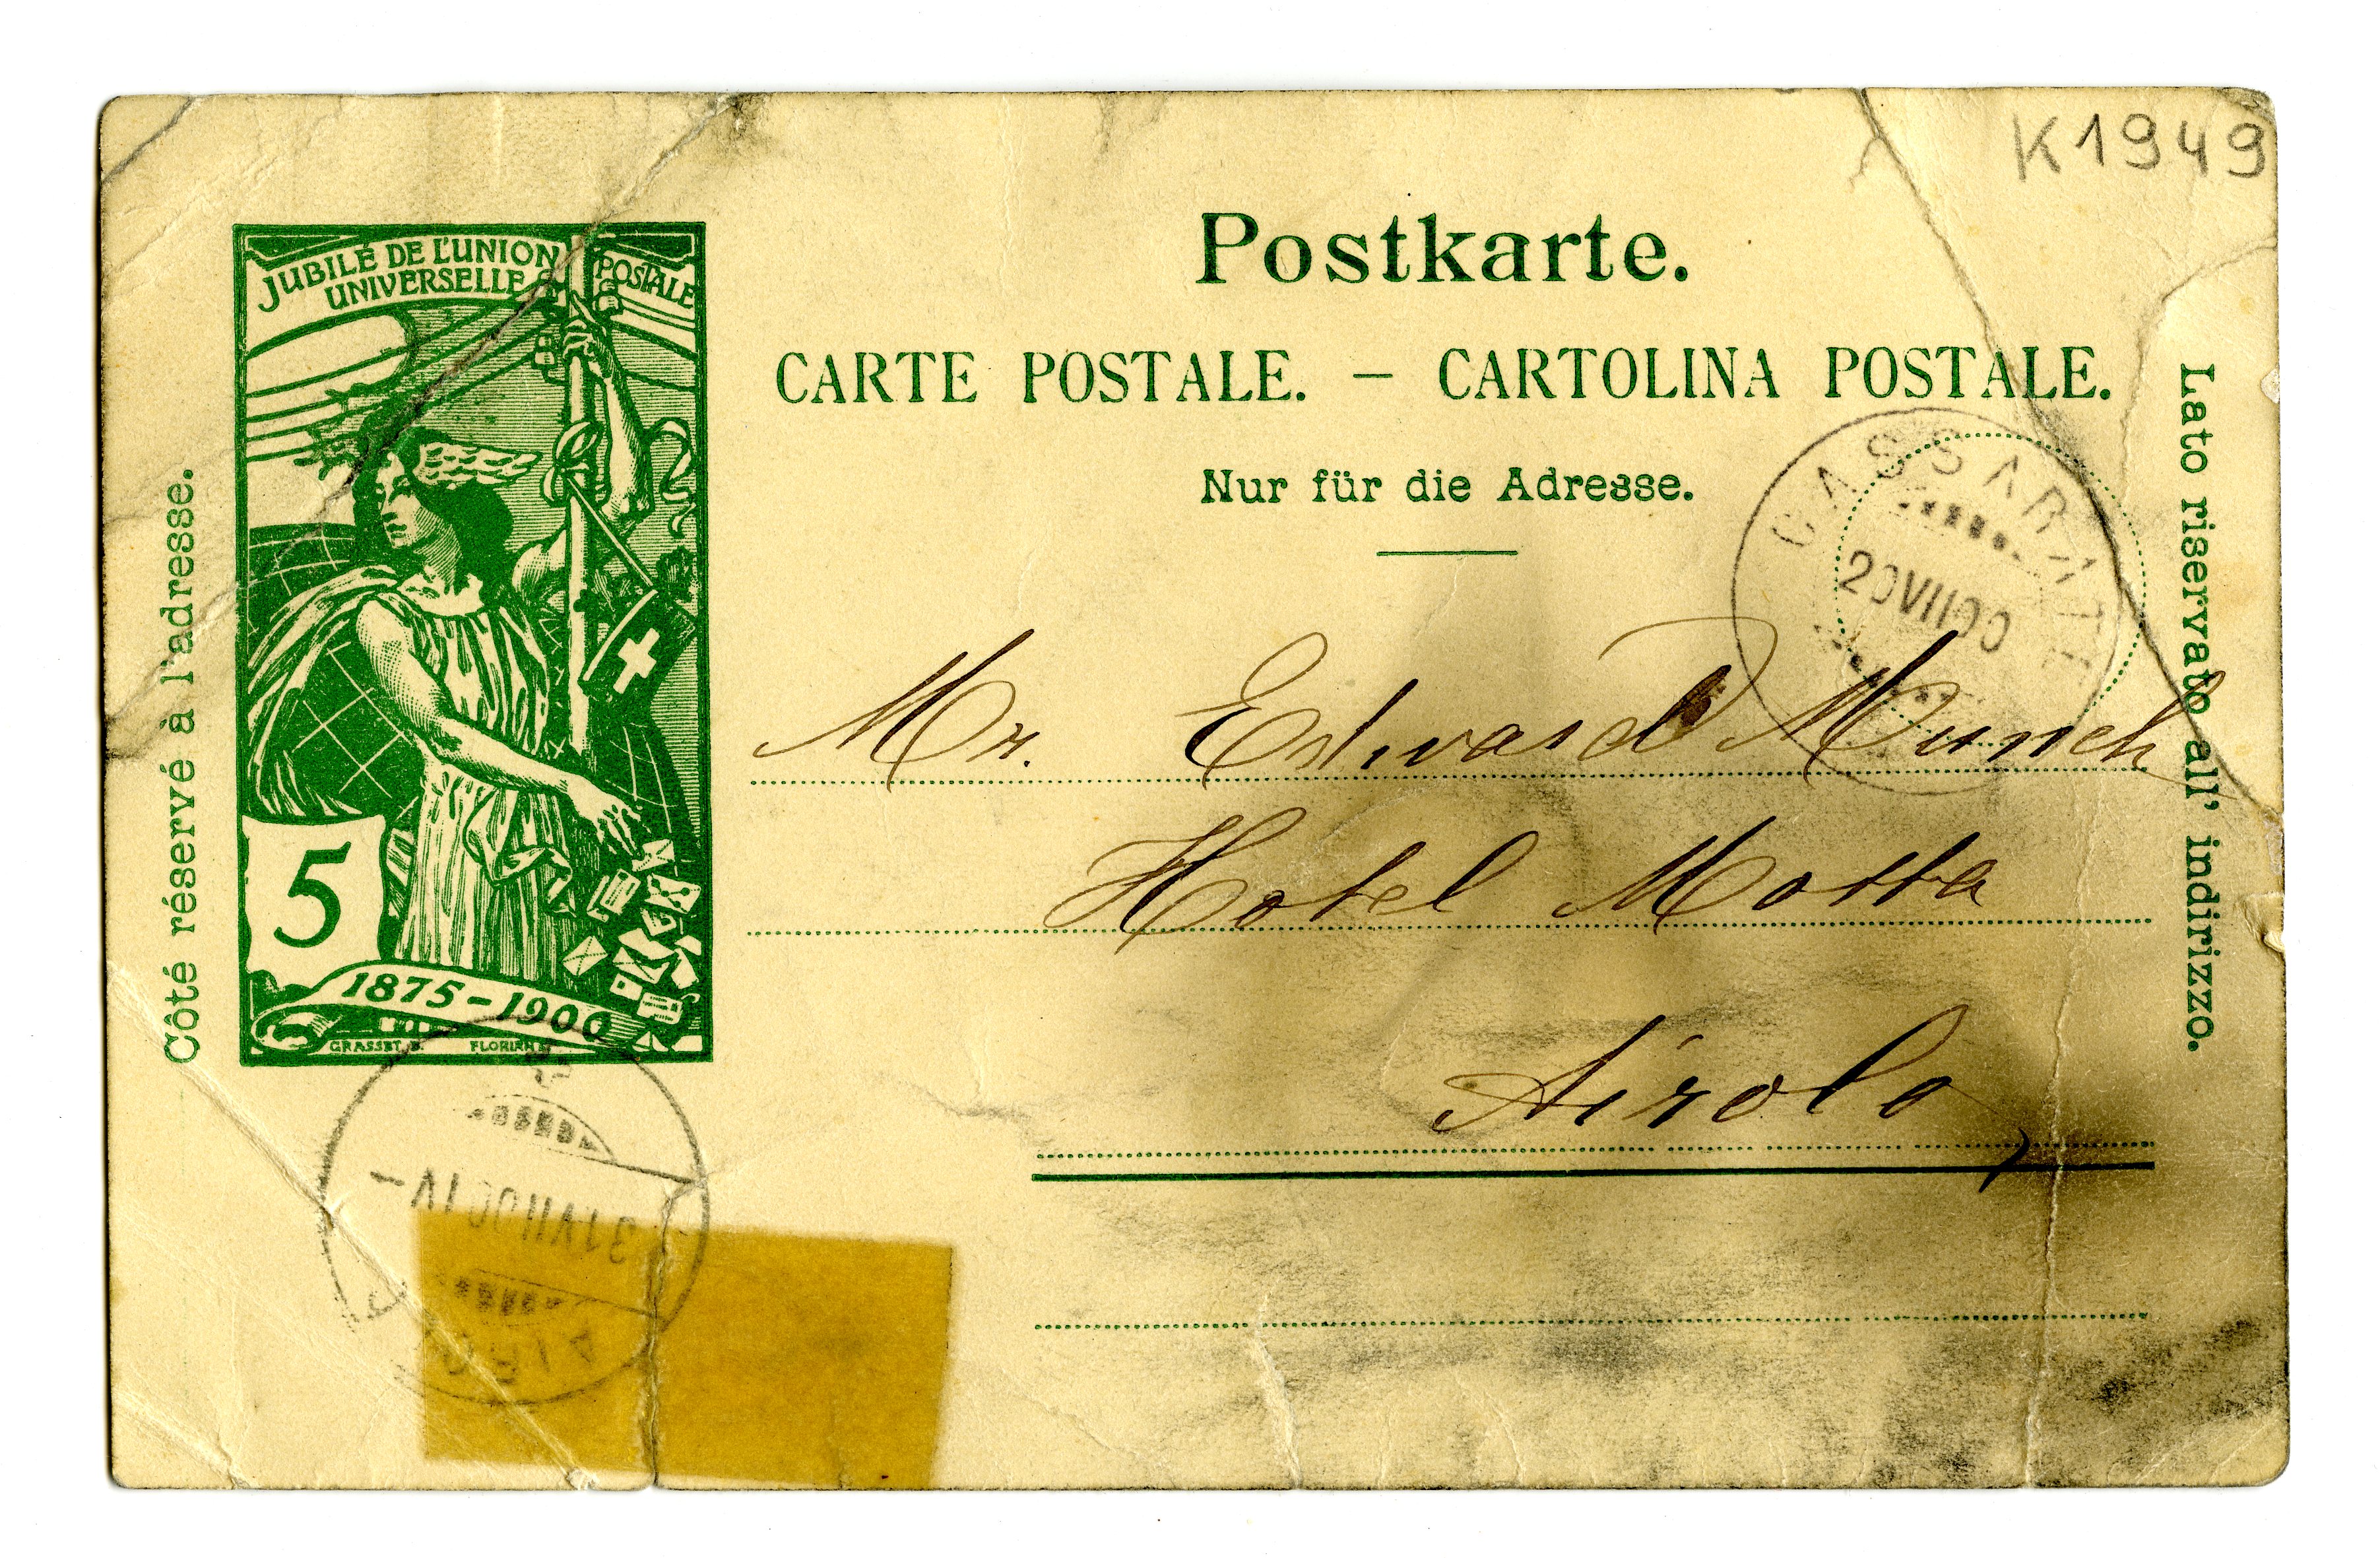 K1949
JUBILÉ DE L'UNION POSTALE
UNIVERSELLE
5
1875-1900
GRASSET
FLORIAN
Côté réservé à l'adresse.
Postkarte.
CARTE POSTALE. — CARTOLINA POSTALE.
Nur für die Adresse.
Lato riservato all' indirizzo.
CASSARATE
Mr. Edward Munch
Hotel Motta
Airolo